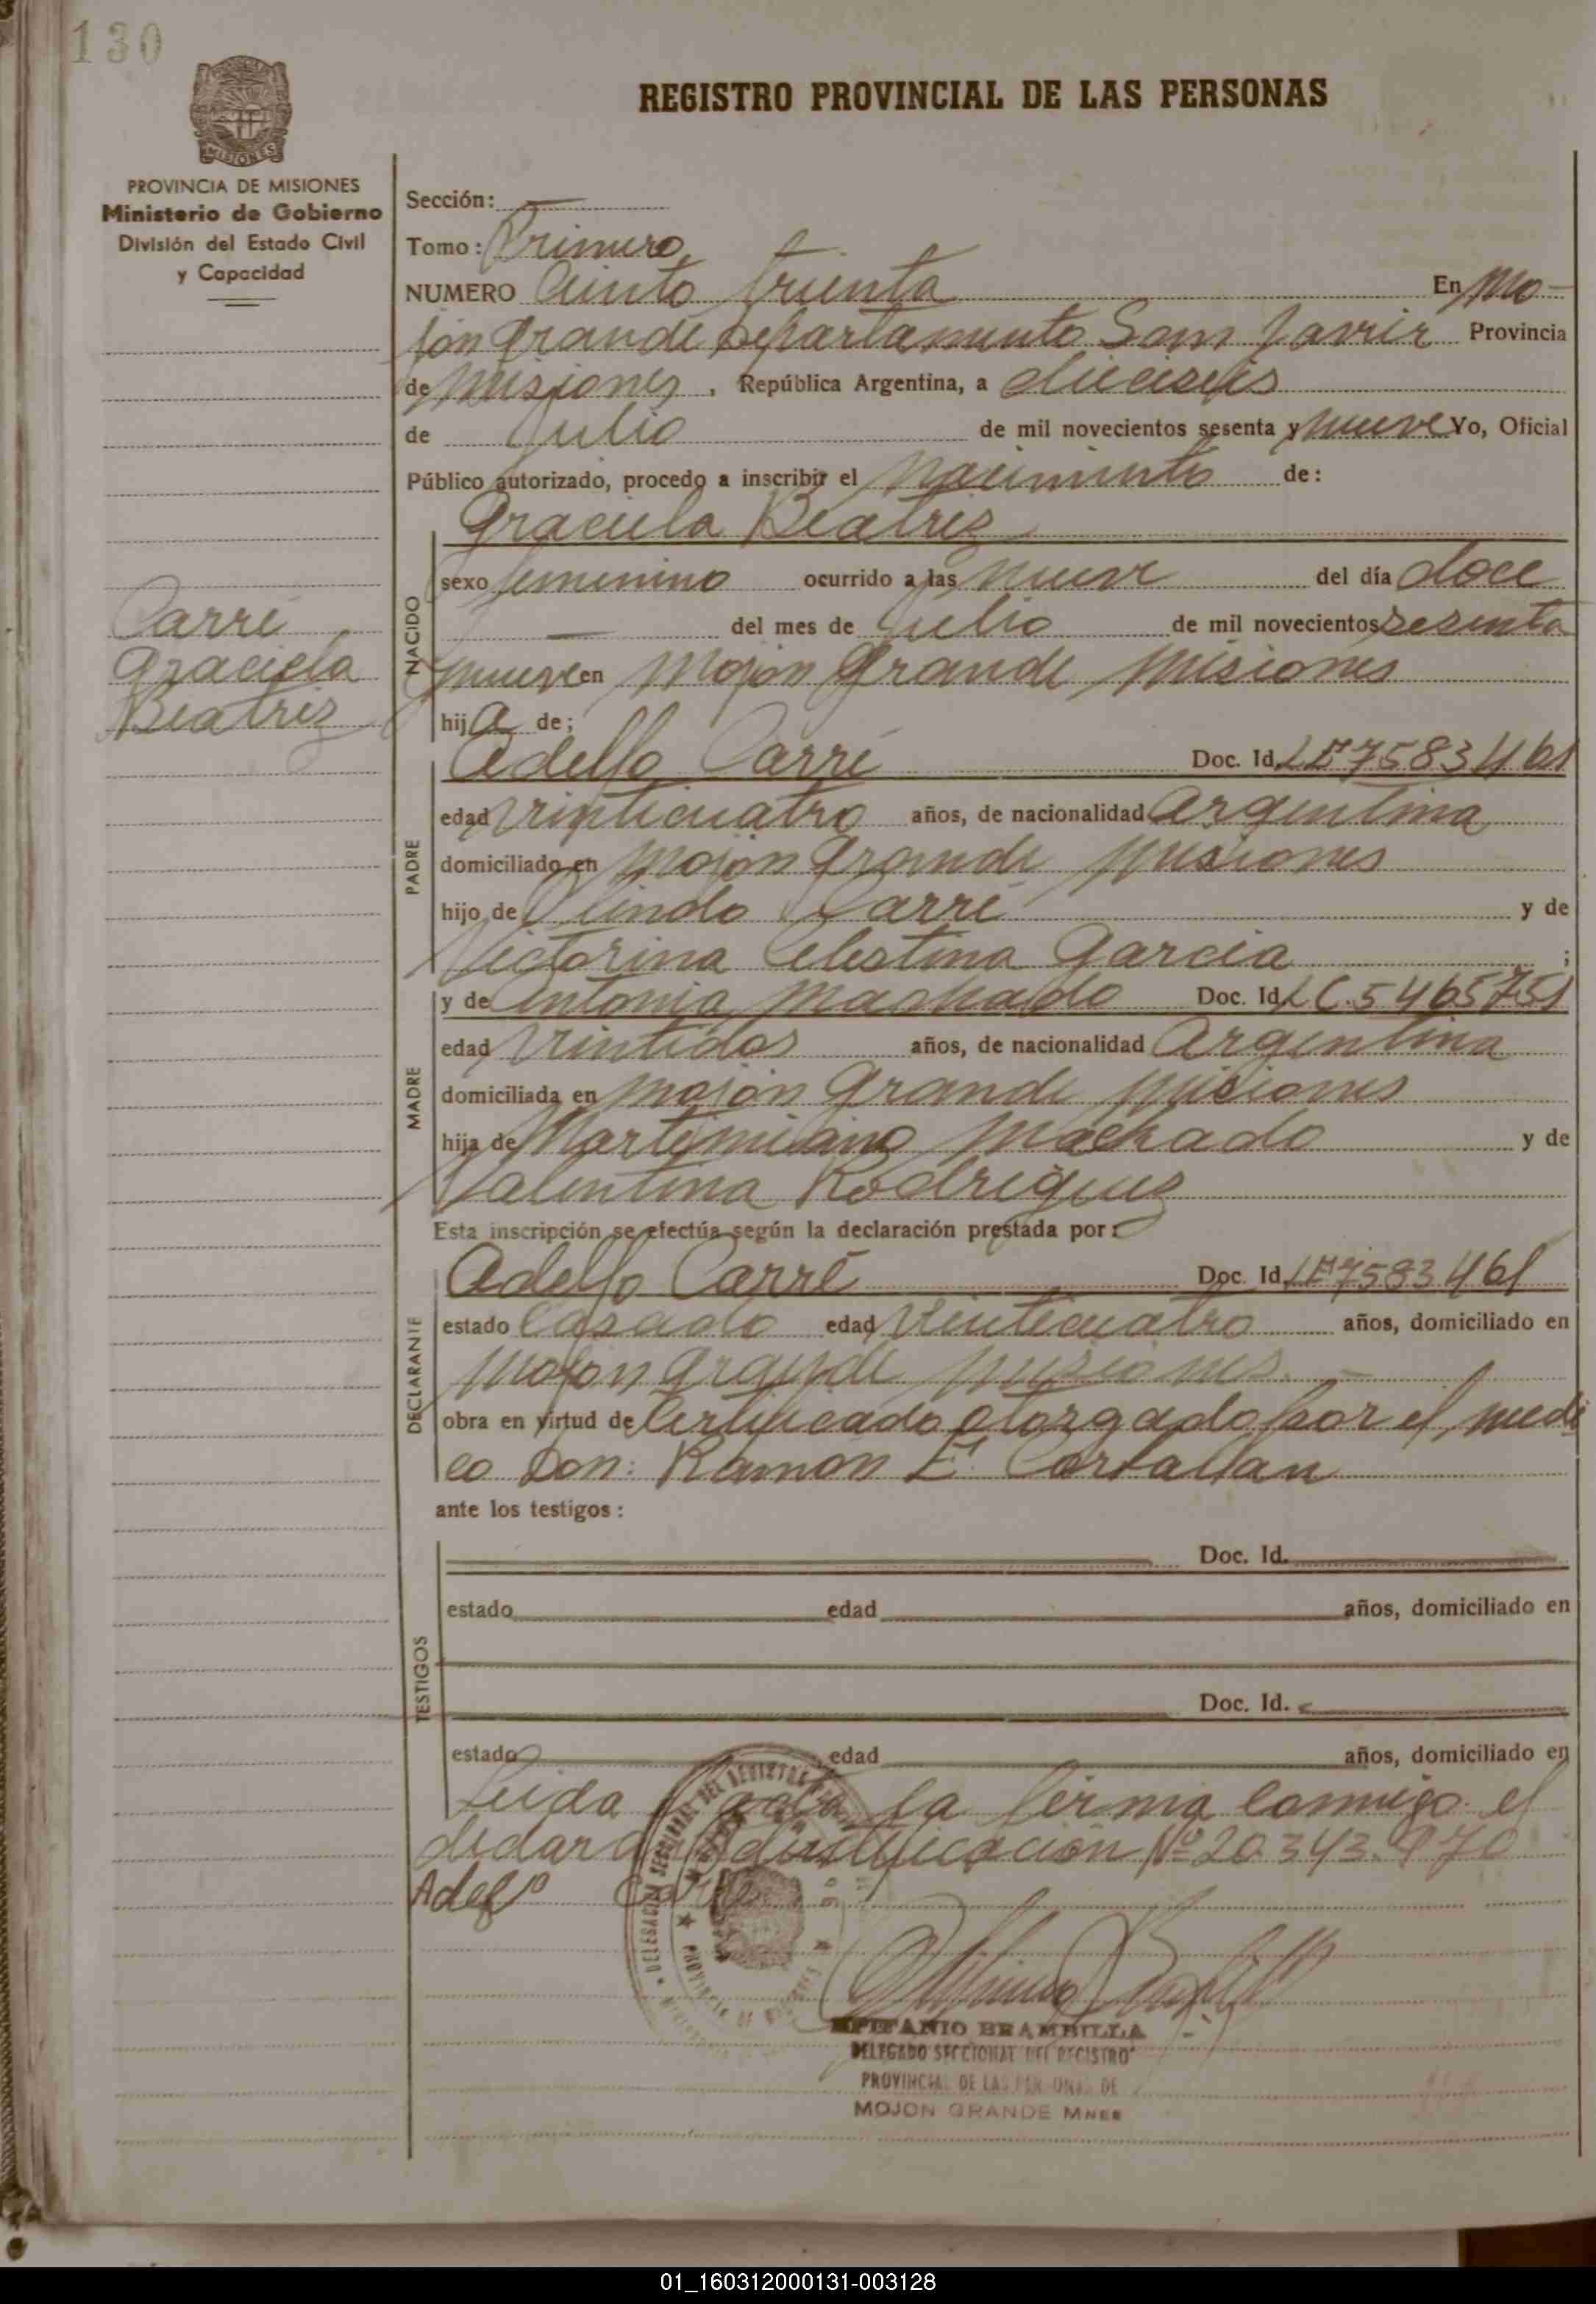 130
REGISTRO PROVINCIAL DE LAS PERSONAS
MISIONES
PROVINCIA DE MISIONES
Ministerio de Gobierno
División del Estado Civil
y Capacidad
Sección:
Tomo: Primero
NUMERO Ciento treinta En Mo-
jón Grande Departamento San Javier Provincia
de Misiones, República Argentina, a dieciseis
de Julio de mil novecientos sesenta y nueve Yo, Oficial
Público autorizado, procedo a inscribir el Nacimiento de:
Graciela Beatriz
sexo femenino ocurrido a las nueve del día doce
del mes de Julio de mil novecientos sesenta
y nueve en Mojon Grande Misiones
hija de;
NACIDO
Carré
Graciela
Beatriz
Adelfo Carré Doc. Id. LE 7583461
edad veinticuatro años, de nacionalidad Argentina
domiciliado en Mojon Grande Misiones
hijo de Olindo Carré y de
Victorina Celestina Garcia ;
PADRE
y de Antonia Machado Doc. Id. LC.5465751
edad veintidos años, de nacionalidad Argentina
domiciliada en Mojón Grande Misiones
hija de Martimiano Machado y de
Valentina Rodriguez
MADRE
Esta inscripción se efectúa según la declaración prestada por:
Adelfo Carré Doc. Id. LE 7583461
estado Casado edad Veinticuatro años, domiciliado en
Mojon Grande Misiones.
obra en virtud de Certificado otorgado por el medi
co Don: Ramón E. Cortallan
DECLARANTE
ante los testigos:
Doc. Id.
estado edad años, domiciliado en
Doc. Id.
estado edad años, domiciliado en
TESTIGOS
Leida la firma conmigo el
Nº 20.343.970
Adelfo Carré
EPIFANIO BRAMBILLA
DELEGADO SECCIONAL DEL REGISTRO
PROVINCIAL DE LAS PERSONAS DE
MOJON GRANDE MNES
01_160312000131-003128